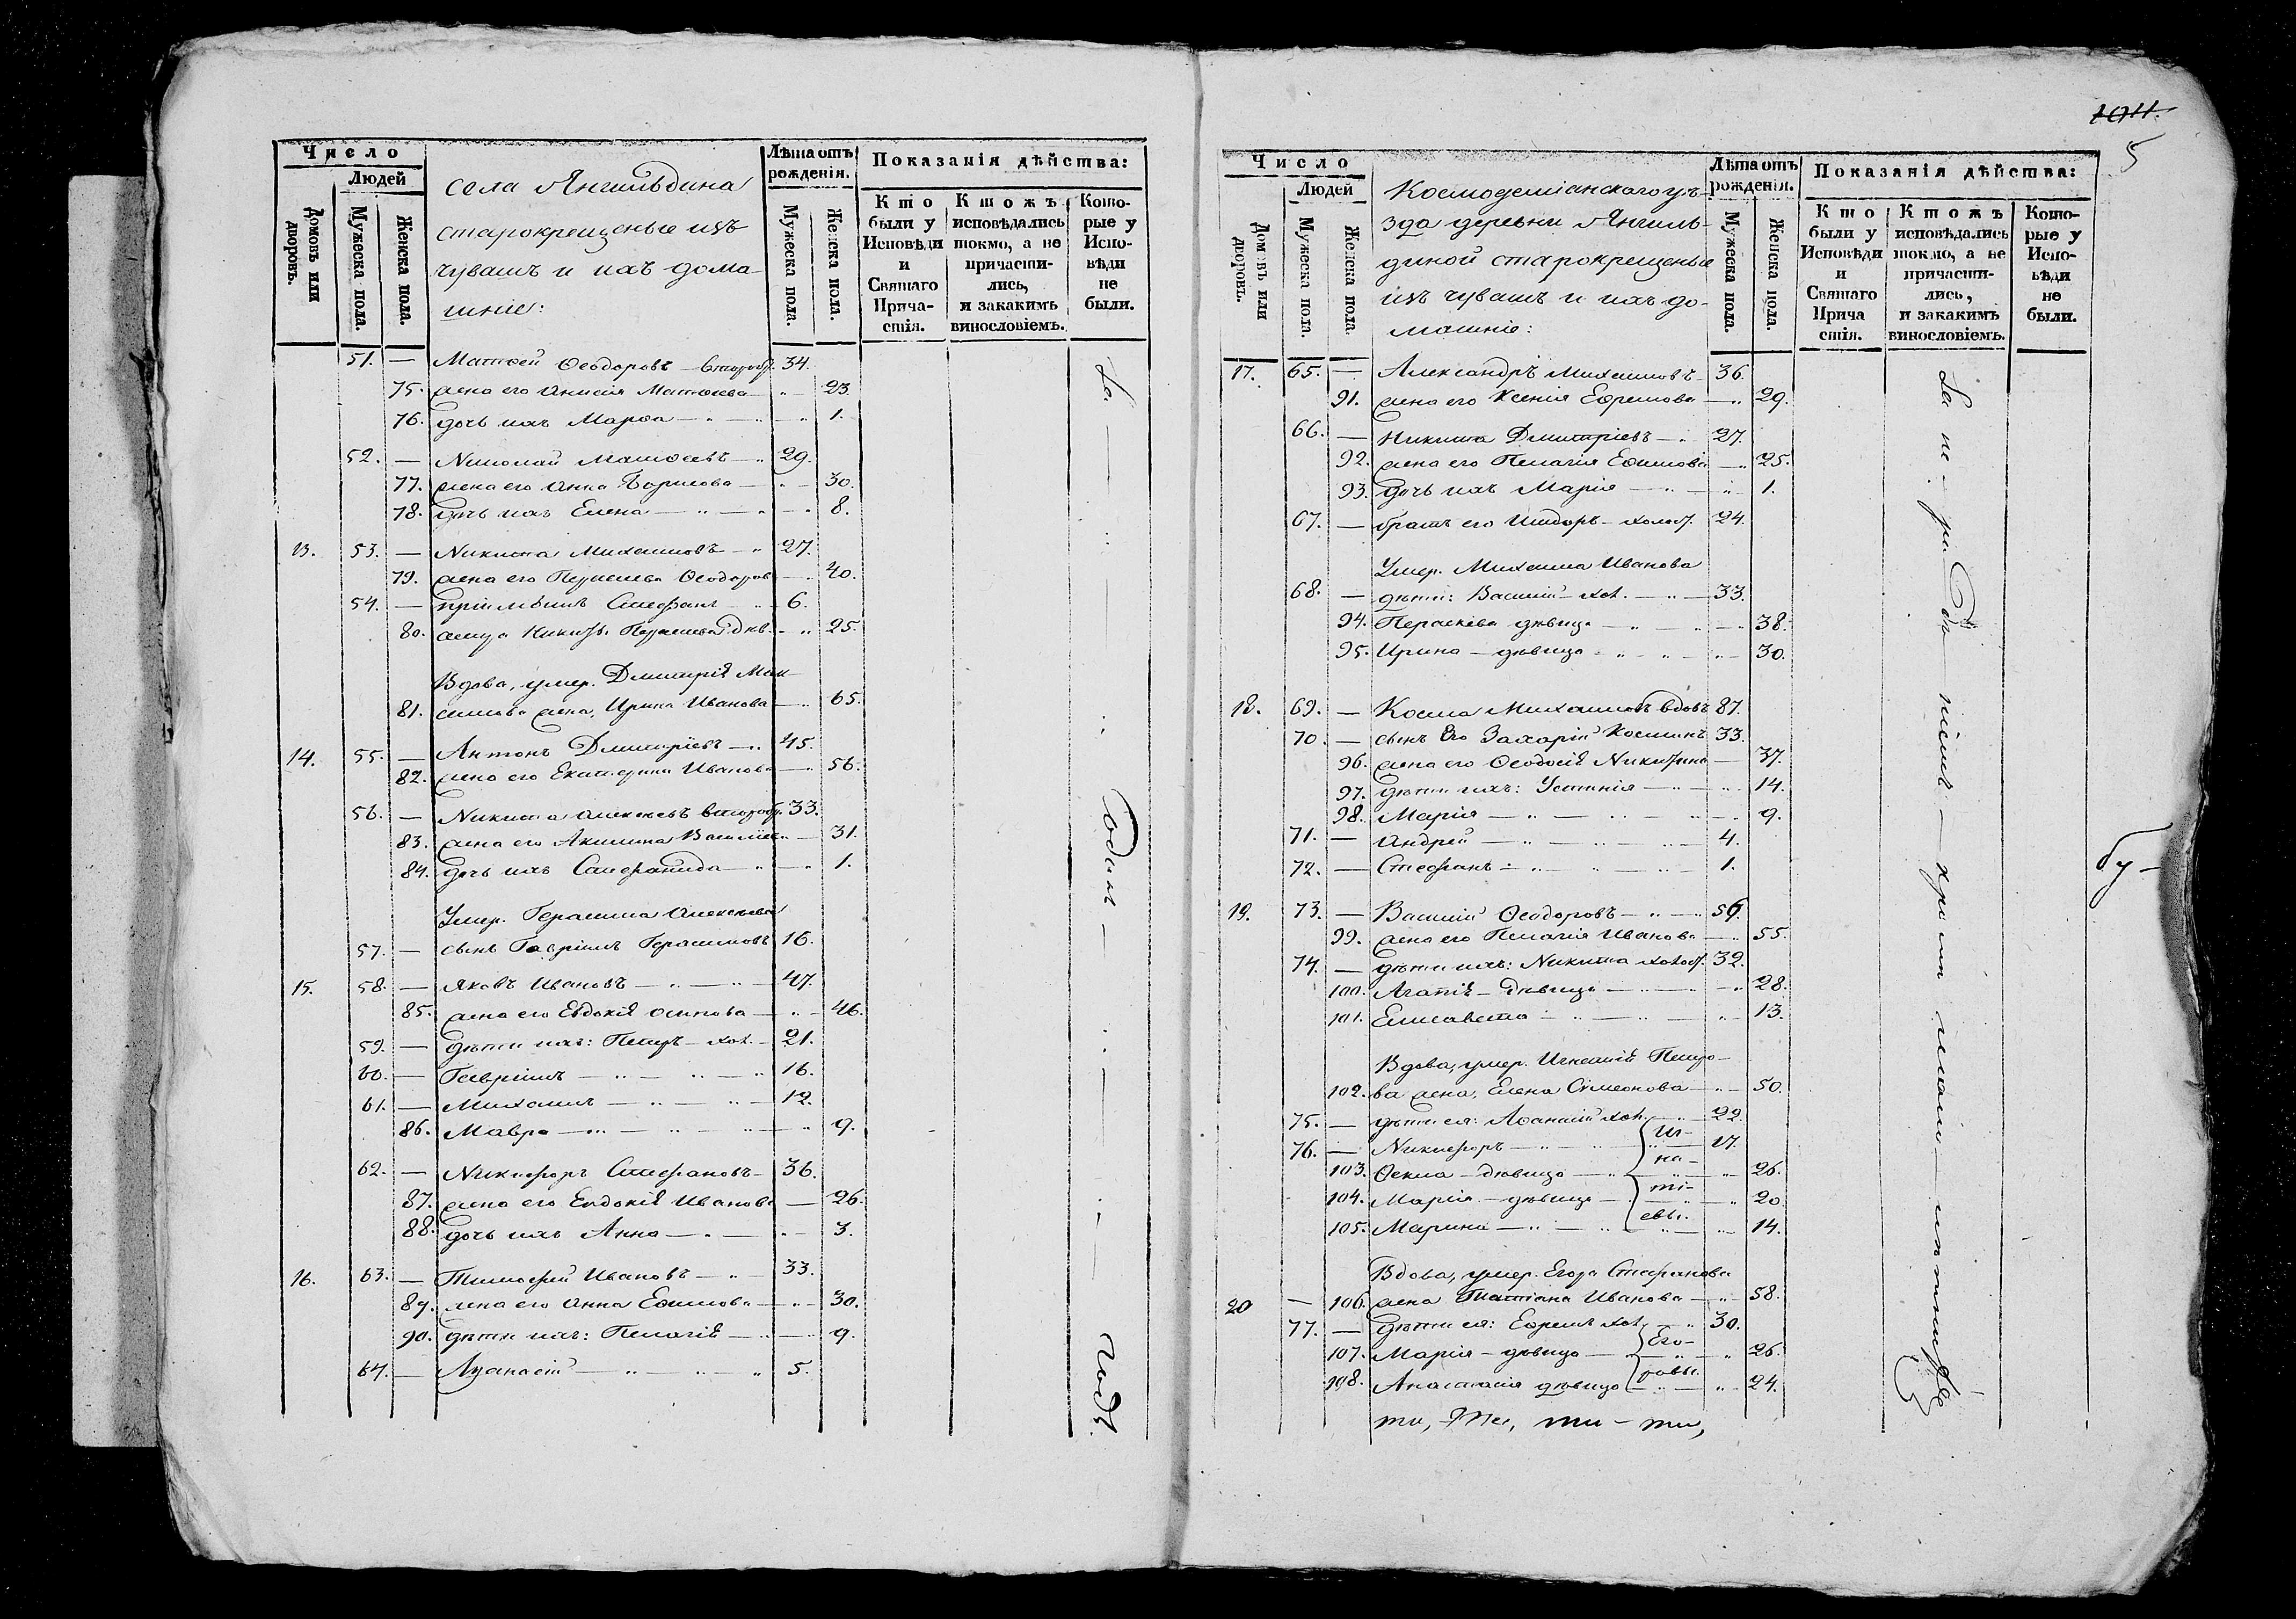 Число
Людей
Домовъ или дворовъ.
Мужеска пола.
Женска пола.
села Янгильдина
старокрещеные изъ
чувашъ и ихъ дома-
шніе:
Лѣта отъ рожденія.
Мужеска пола.
Женска пола.
Показанія дѣйства:
Кто были у Исповѣди и Святаго Прича-стія.
Ктожъ исповѣдались токмо, а не причасти-лись, и закакимъ винословіемъ.
Кото-рые у Испо-вѣди не были.
51. — Матѳей Ѳеодоровъ — второбр. 34.
75. жена его Анисія Матѳеева — 23.
76. дочь ихъ Марѳа — 1.
52. — Николай Матѳеевъ — 29.
77. жена его Анна Борисова — 30.
78. дочь ихъ Елена — 8.
13. 53. — Никита Михаиловъ — 27.
79. жена его Параскева Ѳеодоров 40.
54. — пріимышъ Стефанъ — 6.
80. Никит. Параскева дѣв. — 25.
Вдова, умер. Дмитрія Мак-
81. симова жена, Ирина Иванова — 65.
14. 55. — Антонъ Дмитріевъ — 45.
82. жена его Екатерина Иванова — 56.
56. — Никита Алексѣевъ второбр. 33.
83. жена его Акилина Василіев — 31.
84. дочь ихъ Стефанида — 1.
Умер. Герасима Алексѣева
57. — сынъ Гавріилъ Герасимовъ 16.
15. 58. — Яковъ Ивановъ — 47.
85. жена его Евдокія Осипова — 46.
59. — дѣти ихъ: Петръ — хол. — 21.
60. — Гавріилъ — 16.
61. — Михаилъ — 12.
86. Мавра — 9.
62. — Никифоръ Стефановъ — 36.
87. жена его Евдокія Иванова — 26.
88. дочь ихъ Анна — 3.
16. 63. — Тимофей Ивановъ — 33.
89. жена его Анна Ефимова — 30.
90. дѣти ихъ: Пелагія — 9.
64. — Аѳанасій — 5.
За — один — годъ.
1011.
5
Число
Людей
Домовъ или дворовъ.
Мужеска пола.
Женска пола.
Космодеміанскаго уѣ-
зда деревни Янгиль-
диной старокрещеные
изъ чувашъ и ихъ до-
машніе:
Лѣта отъ рожденія.
Мужеска пола.
Женска пола.
Показанія дѣйства:
Кто были у Исповѣди и Святаго Прича стія.
Ктожъ исповѣдались токмо, а не причасти-лись, и закакимъ винословіемъ.
Кото-рые у Испо-вѣди не были.
17. 65. — Александръ Михаиловъ — 36.
91. жена его Ксенія Ефремова — 29.
66. — Никита Дмитріевъ — 27.
92. жена его Пелагія Ефимова — 25.
93. дочь ихъ Марія — 1.
67. — братъ его Исидоръ — холост. 24.
Умер. Михаила Иванова
68. — дѣти: Василій — хол. — 33.
94. Параскева дѣвица — 38.
95. Ирина — дѣвица — 30.
18. 69. — Косма Михаиловъ вдовъ 87.
70. — сынъ его Захарій Косминъ 33.
96. жена его Ѳеодосія Никитина — 37.
97. дѣти ихъ: Устинія — 14.
98. Марія — 9.
71. — Андрей — 4.
72. — Стефанъ — 1.
19. 73. — Василій Ѳеодоровъ — 56.
99. жена его Пелагія Иванова — 55.
74. — дѣти ихъ: Никита холос. 32.
100. Агапія — дѣвица — 28.
101. Елисавета — 13.
Вдова, умер. Игнатія Петро-
102. ва жена, Елена Симеонова — 50.
75. — дѣти ея: Аѳанасій хол. — 22.
76. — Никифоръ — 17.
103. Ѳекла — дѣвица — 26.
104. Марія — дѣвица — 20.
105. Марина — 14.
Иг-
на-
ті-
евы.
Вдова, умер. Егора Стефанова
20 — 106. жена Татіана Иванова — 58.
77. — дѣти ея: Ефремъ хол. — 30.
107. Марія — дѣвица — 26.
108. Анастасія дѣвица — 24.
Его-
ровы.
За не-
бу-